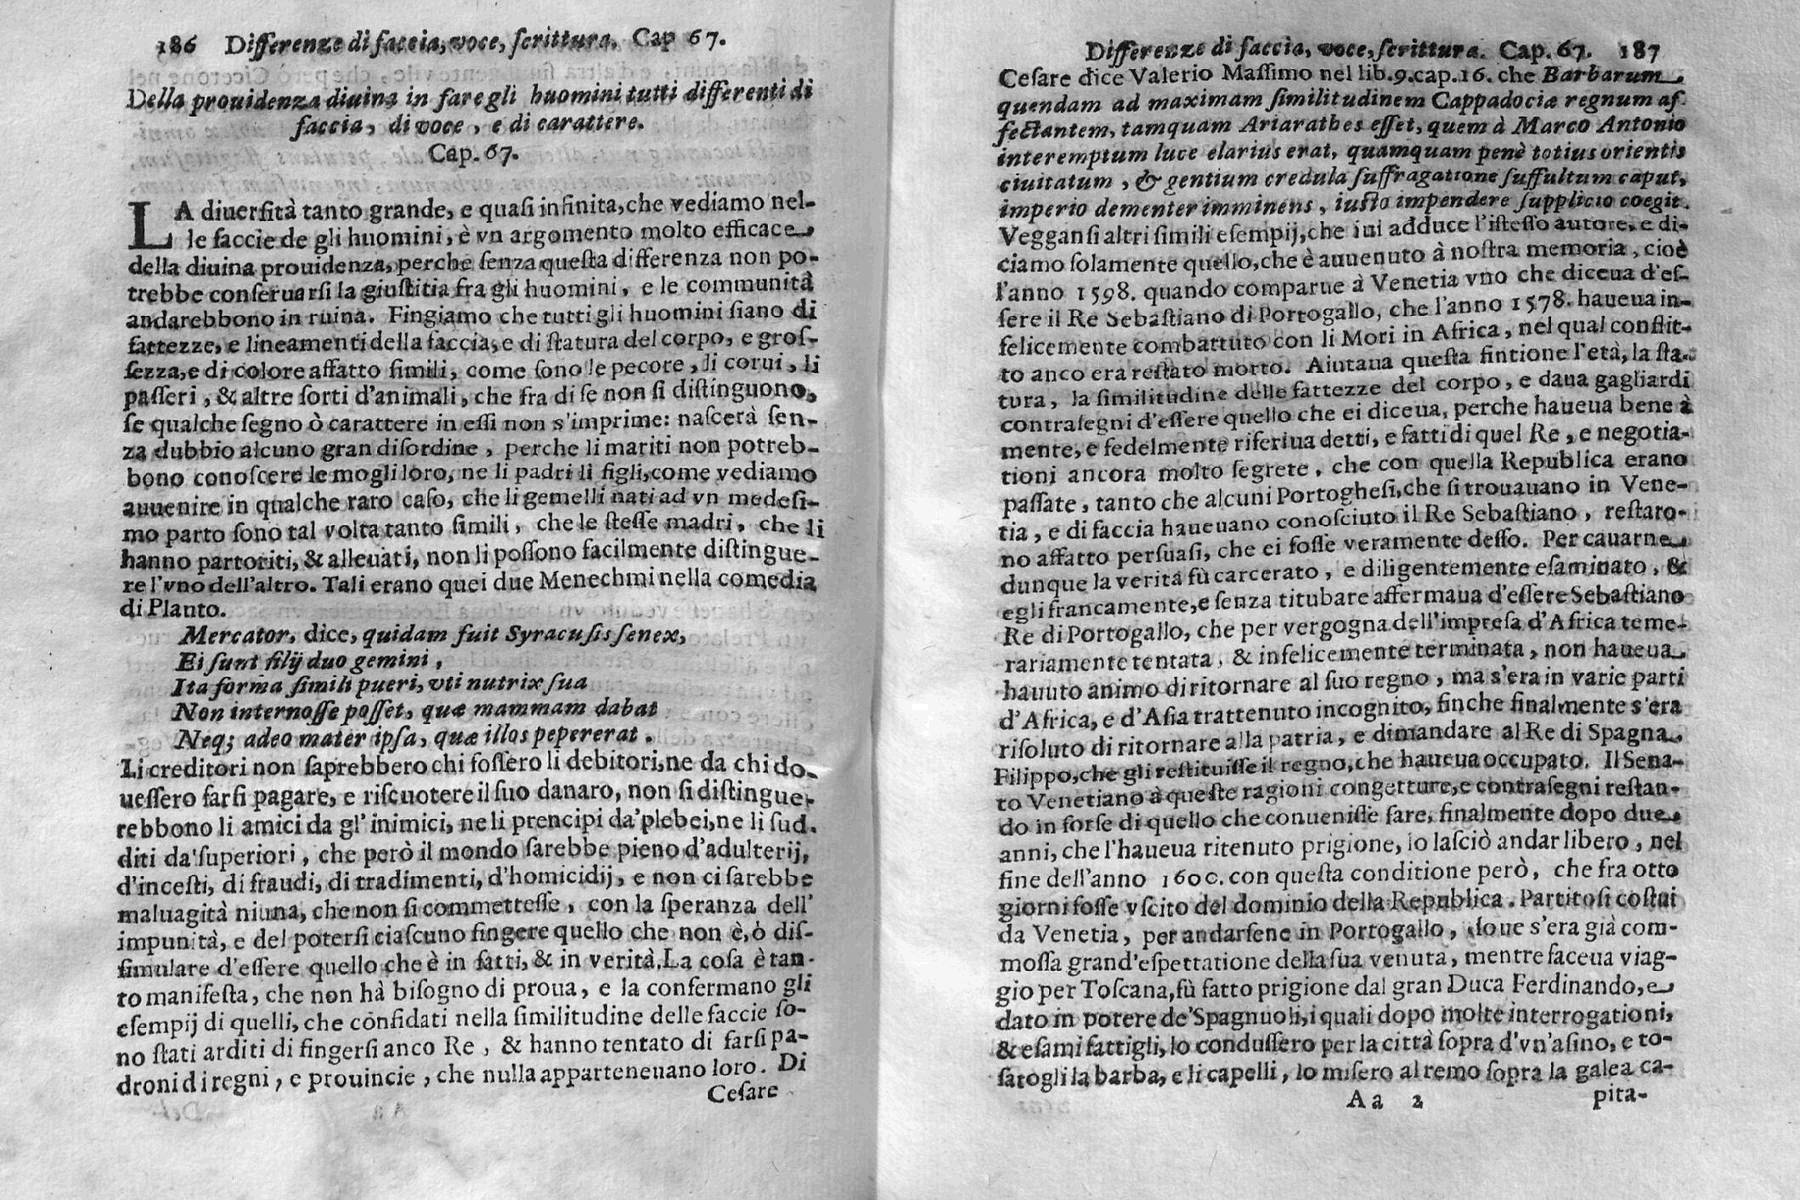 186 Differenze di faccia, voce, ſcrittura. Cap 67.
Della prouidenza diuina in fare gli huomini tutti differenti di
faccia, di voce, e di carattere.
Cap. 67.
LA diuerſità tanto grande, e quaſi infinita, che vediamo nel-
le faccie de gli huomini, è vn argomento molto efficace
della diuina prouidenza, perche ſenza queſta differenza non po-
trebbe conſeruarſi la giuſtitia fra gli huomini, e le communità
andarebbono in ruina. Fingiamo che tutti gli huomini ſiano di
fattezze, e lineamenti della faccia, e di ſtatura del corpo, e groſ-
ſezza, e di colore affatto ſimili, come ſono le pecore, li corui, li
paſſeri, & altre ſorti d'animali, che fra di ſe non ſi diſtinguono,
ſe qualche ſegno ò carattere in eſſi non s'imprime: naſcerà ſen-
za dubbio alcuno gran diſordine, perche li mariti non potreb-
bono conoſcere le mogli loro, ne li padri li figli, come vediamo
auuenire in qualche raro caſo, che li gemelli nati ad vn medeſi-
mo parto ſono tal volta tanto ſimili, che le ſteſſe madri, che li
hanno partoriti, & alleuati, non li poſſono facilmente diſtingue-
re l'vno dell'altro. Tali erano quei due Menechmi nella comedia
di Plauto.
Mercator, dice, quidam fuit Syracuſis ſenex,
Ei ſunt filij duo gemini,
Ita forma ſimili pueri, vti nutrix ſua
Non internoſſe poſſet, quæ mammam dabat
Neq; adeo mater ipſa, quæ illos pepererat.
Li creditori non ſaprebbero chi foſſero li debitori, ne da chi do-
ueſſero farſi pagare, e riſcuotere il ſuo danaro, non ſi diſtingue-
rebbono li amici da gl'inimici, ne li prencipi da'plebei, ne li ſud-
diti da'ſuperiori, che però il mondo ſarebbe pieno d'adulterij,
d'inceſti, di fraudi, di tradimenti, d'homicidij, e non ci ſarebbe
maluagità niuna, che non ſi commetteſſe, con la ſperanza dell'
impunità, e del poterſi ciaſcuno fingere quello che non è, ò diſ-
ſimulare d'eſſere quello che è in fatti, & in verità. La coſa è tan-
to manifeſta, che non hà biſogno di proua, e la confermano gli
eſempij di quelli, che cõfidati nella ſimilitudine delle faccie ſo-
no ſtati arditi di fingerſi anco Re, & hanno tentato di farſi pa-
droni di regni, e prouincie, che nulla apparteneuano loro. Di
Ceſare
Differenze di faccia, voce, ſcrittura. Cap. 67. 187
Ceſare dice Valerio Maſſimo nel lib. 9. cap. 16. che Barbarum
quendam ad maximam ſimilitudinem Cappadociæ regnum af-
fectantem, tamquam Ariarathes eſſet, quem à Marco Antonio
interemptum luce clarius erat, quamquam penè totius orientis
ciuitatum, & gentium credula ſuffragatione ſuffultum caput,
imperio dementer imminens, iuſto impendere ſupplicio coegit.
Veggan ſi altri ſimili eſempij, che iui adduce l'iſteſſo autore, e di-
ciamo ſolamente quello, che è auuenuto à noſtra memoria, cioè
l'anno 1598. quando comparue à Venetia vno che diceua d'eſ-
ſere il Re Sebaſtiano di Portogallo, che l'anno 1578. haueua in-
felicemente combattuto con li Mori in Africa, nel qual conflit-
to anco era reſtato morto. Aiutaua queſta fintione l'età, la ſta-
tura, la ſimilitudine delle fattezze del corpo, e daua gagliardi
contraſegni d'eſſere quello che ei diceua, perche haueua bene à
mente, e fedelmente riferiua detti, e fatti di quel Re, e negotia-
tioni ancora molto ſegrete, che con quella Republica erano
paſſate, tanto che alcuni Portogheſi, che ſi trouauano in Vene-
tia, e di faccia haueuano conoſciuto il Re Sebaſtiano, reſtaro-
no affatto perſuaſi, che ei foſſe veramente deſſo. Per cauarne
dunque la verità fù carcerato, e diligentemente eſaminato, &
egli francamente, e ſenza titubare affermaua d'eſſere Sebaſtiano
Re di Portogallo, che per vergogna dell'impreſa d'Africa teme-
rariamente tentata, & infelicemente terminata, non haueua
hauuto animo di ritornare al ſuo regno, ma s'era in varie parti
d'Africa, e d'Aſia trattenuto incognito, finche finalmente s'era
riſoluto di ritornare alla patria, e dimandare al Re di Spagna
Filippo, che gli reſtituiſſe il regno, che haueua occupato. Il Sena-
to Venetiano à queſte ragioni congetture, e contraſegni reſtan-
do in forſe di quello che conueniſſe fare, finalmente dopo due
anni, che l'haueua ritenuto prigione, lo laſciò andar libero, nel
fine dell'anno 1600. con queſta conditione però, che fra otto
giorni foſſe vſcito del dominio della Republica. Partitoſi coſtui
da Venetia, per andarſene in Portogallo, doue s'era già com-
moſſa grand'eſpettatione della ſua venuta, mentre faceua viag-
gio per Toſcana, fù fatto prigione dal gran Duca Ferdinando, e
dato in potere de'Spagnuoli, i quali dopo molte interrogationi,
& eſami fattigli, lo conduſſero per la città ſopra d'vn'aſino, e to-
ſatogli la barba, e li capelli, lo miſero al remo ſopra la galea ca-
Aa 2 pita-